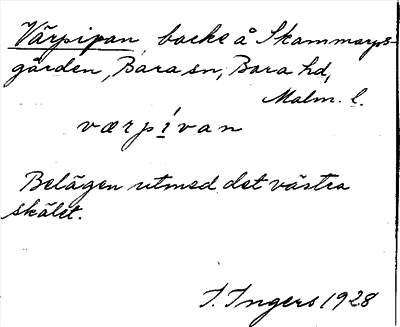 Värpipan, backe å Skammarps-
gården, Bara sn, Bara hd,
Malm. l.
værpívan
Belägen utmed det västra
skälet.
I. Ingers 1928